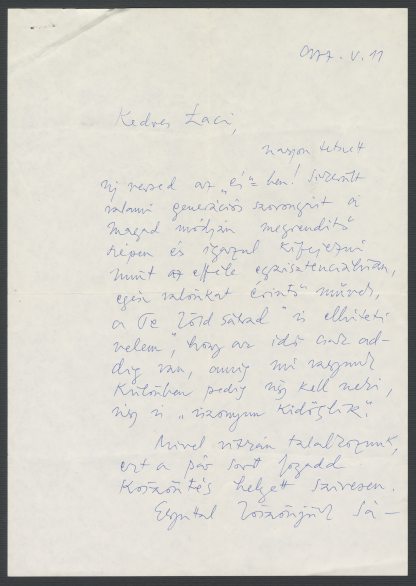 977. V. 11
Kedves Laci,
nagyon tetszett
új versed az „és"-ben! Sikerült
valami generációs szorongást a
magad módján megrendítő
szépen és igazul kifejezni
mint az efféle egzisztenciálisan,
egész valónkat érintő művek,
a Te is elhiteti
velem, hogy az idő csak ad-
dig van, amíg mi vagyunk
különben pedig úgy kell neki,
úgy is „iszonyum kidöglik".
Mivel ritkán találkozunk,
ezt a pár sort fogadd
köszöntés helyett szívesen.
Egyúttal köszönjük Sá-